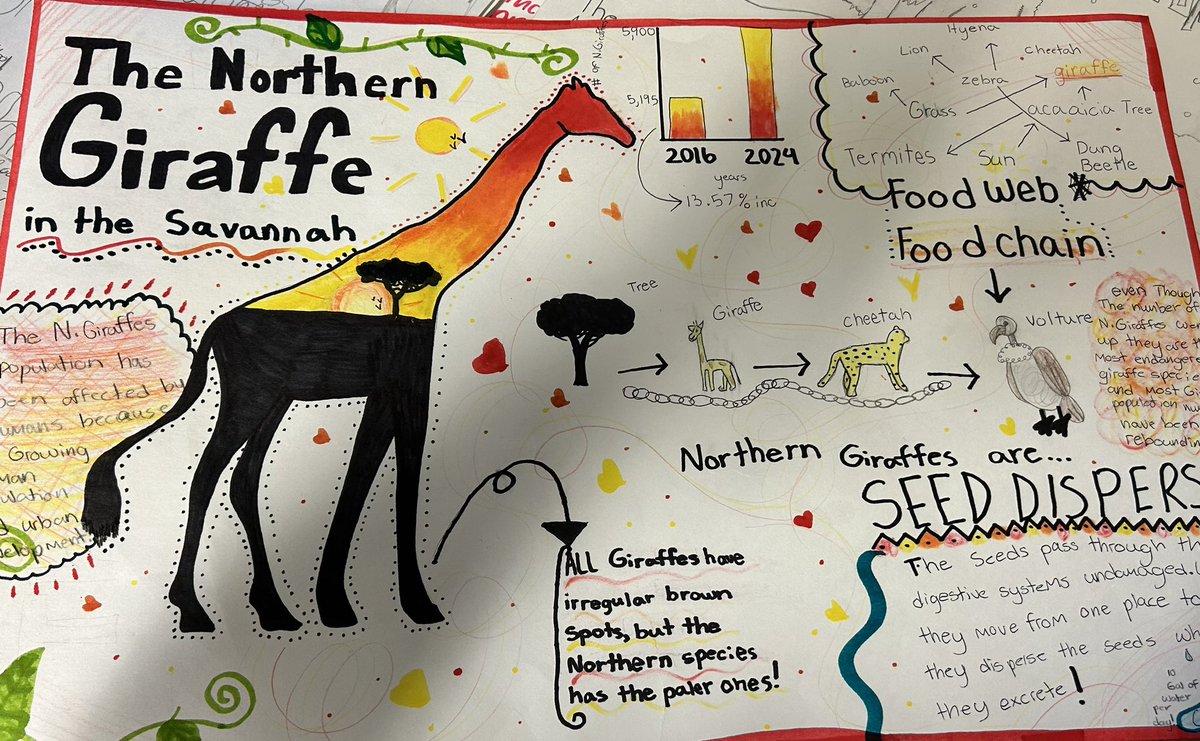 The Northern
Giraffe
in the Savannah
# of N.Giraffes
5,900
5,195
2016 2024
years
13.57% inc
Hyena
Lion
cheetah
Baboon
zebra
giraffe
Grass
acaaicia Tree
Termites
Sun
Dung
Beetle
Food web *
Food chain
Tree
Giraffe
cheetah
volture
The N.Giraffes
population has
been affected by
because
Growing
urban
even Though
The number of
N.Giraffes
up they are
Most endangered
giraffe species
and most
population
have been
rebounding
Northern Giraffes are...
SEED DISPERS
The Seeds pass through
digestive systems undamaged.
they move from one place to
they disperse the seeds
they excrete!
10
Gal of
water
per
day!
ALL Giraffes have
irregular brown
spots, but the
Northern species
has the paler ones!